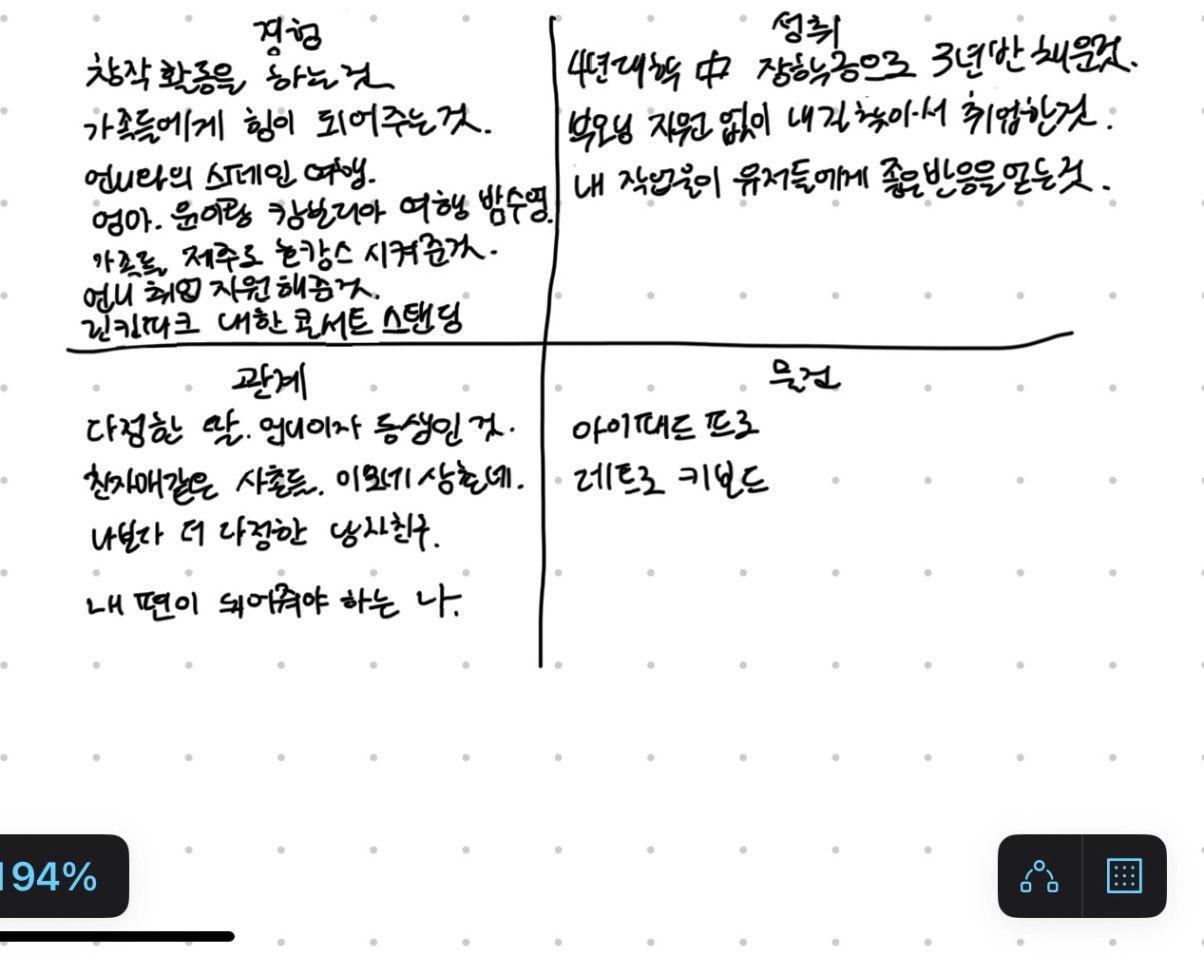 경험
창작 활동을 하는 것
가족들에게 힘이 되어주는것.
언니와의 스페인 여행.
엄마. 윤이랑 캄보디아 여행 밤수영.
가족들 제주로 호캉스 시켜준것.
언니 취업 지원해준것.
린킨파크 내한 콘서트 스탠딩
성취
4년대학 中 장학금으로 3년반 채운것.
부모님 지원 없이 내길 찾아서 취업한것.
내 작업물이 유저들에게 좋은반응을 얻는것.
관계
다정한 말. 언니이자 동생인 것.
친자매같은 사촌들. 이모네 삼촌네.
나보다 더 다정한 남자친구.
내 편이 되어줘야 하는 나.
물건
아이패드 프로
레트로 키보드
194%